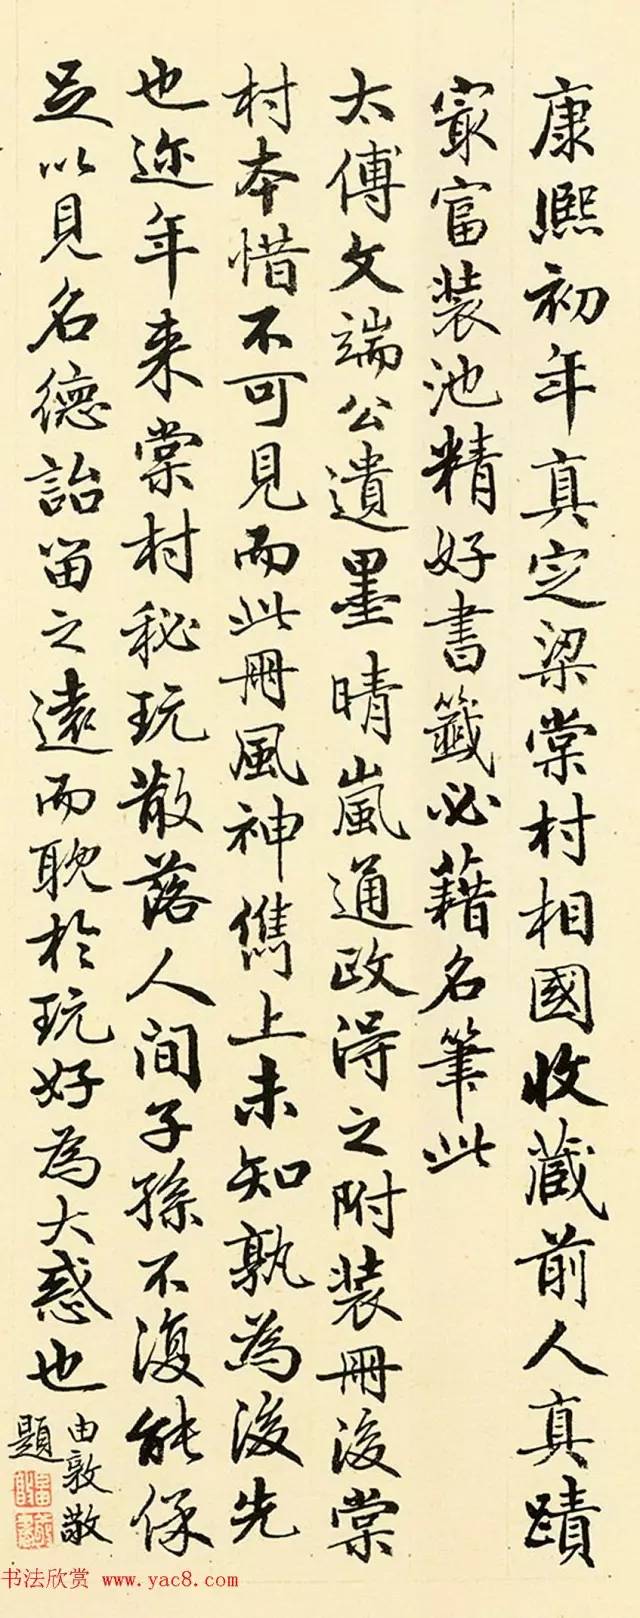 康熙初年真定梁棠村相國收藏前人真蹟
㝡富装池精好書籤必藉名筆此
太傅文端公遺墨晴嵐通政得之附装冊後棠
村本惜不可見而此冊風神儁上未知孰為後先
也迩年来棠村秘玩散落人間子孫不復能保
足以見名德詒留之遠而耽於玩好為大惑也
由敦敬
題
书法欣赏 www.yac8.com